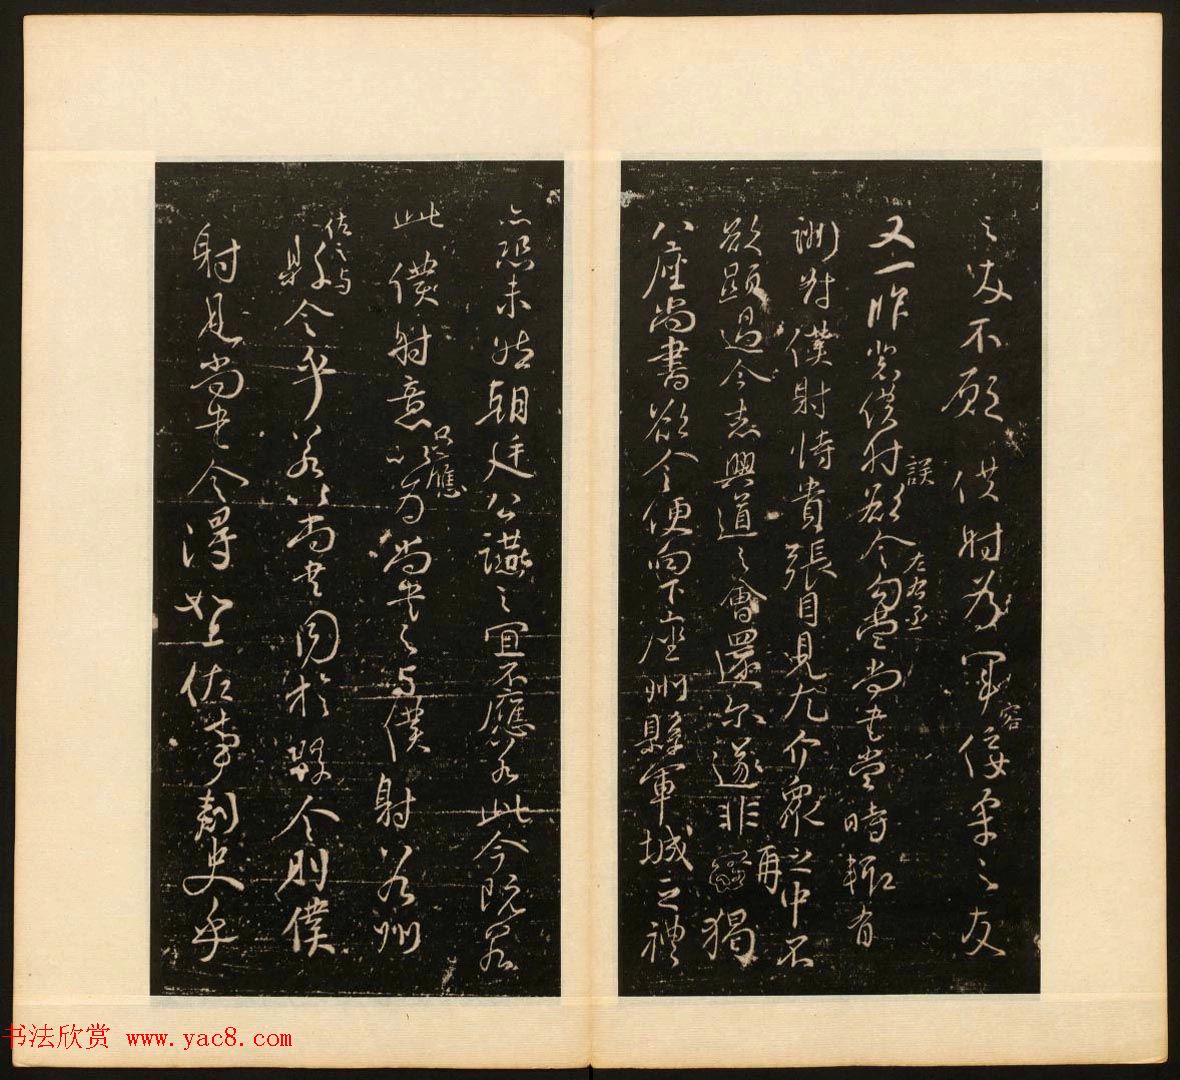 之友不願僕射為軍容佞柔之友
又一昨裴僕射誤欲令左右丞勾當尚書當時輒有
酬對僕射恃貴張目見尤介眾之中不
欲顯過今者興道之會還爾遂非再猲
八座尚書欲令便向下座州縣軍城之禮
亦恐未然朝廷公讌之宜不應若此今既若
此僕射意只應以為尚書之與僕射若州
佐之與縣令乎若以尚書同於縣令則僕
射見尚書令得如上佐事刺史乎
书法欣赏 www.yac8.com